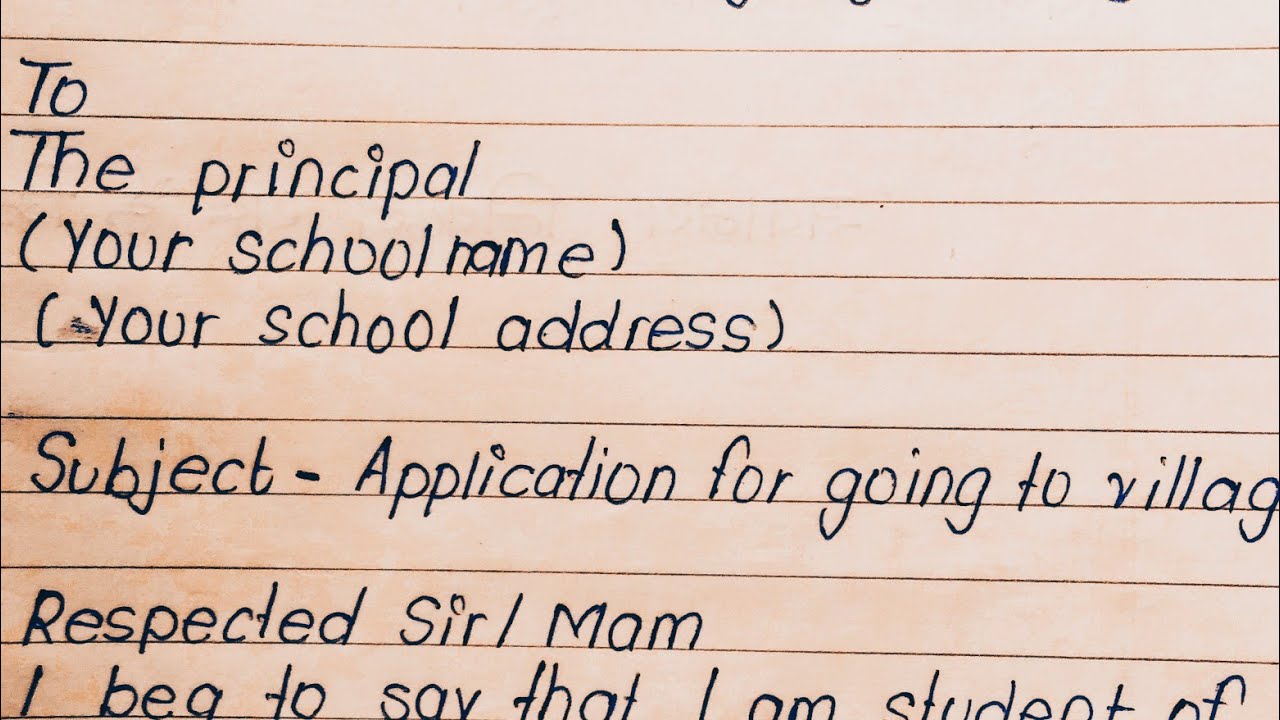 To
The principal
(Your school name)
(Your school address)
Subject - Application for going to villag
Respected Sir/ Mam
I beg to say that I am student of